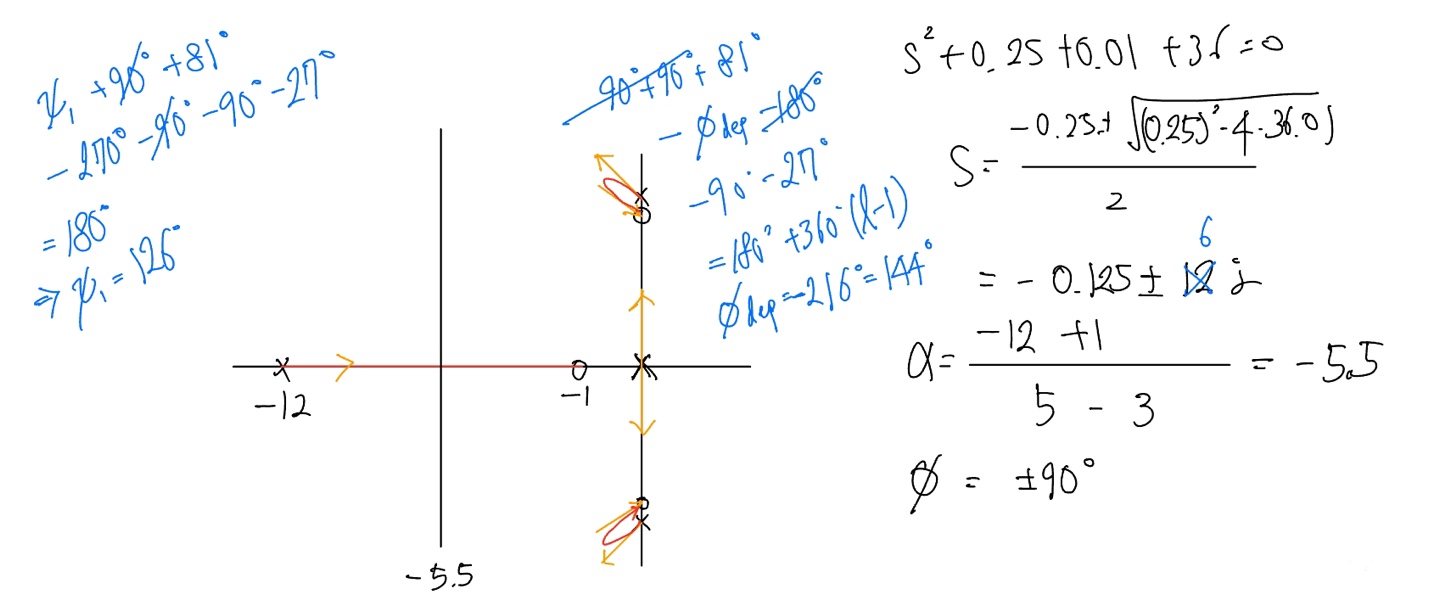 ψ₁ + 90° + 81°
- 270° - 90° - 90° - 27°
= 180°
⇒ ψ₁ = 126°
90° + 90° + 81°
- ϕdep - 180°
- 90° - 27°
= 180° + 360°(l-1)
ϕdep = -216° = 144°
-12
-1
-5.5
s² + 0.25 + 0.01 + 36 = 0
S = (-0.25 ± √((0.25)² - 4 · 36.0)) / 2
6
= -0.125 ± 12 j
α = (-12 + 1) / (5 - 3) = -5.5
ϕ = ±90°